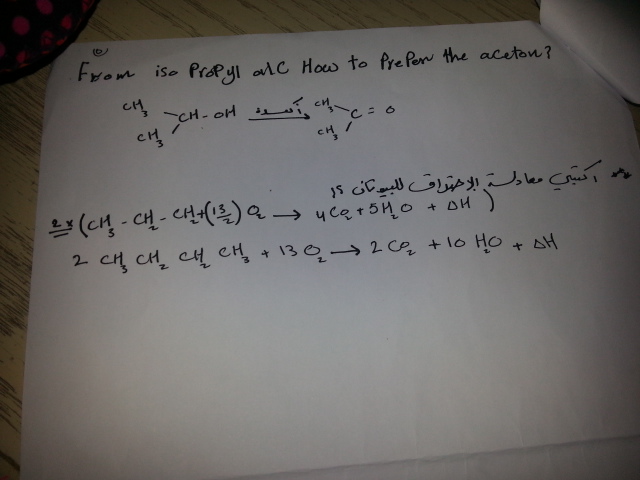 From iso Propyl alC How to Prepen the aceton?
CH3
CH3 CH-OH أكسدة → CH3 CH3 C = O
اكتبي معادلة الاحتراق للبيوتان
2x (CH3 - CH2 - CH2 + (13/2) O2 → 4 CO2 + 5 H2O + ΔH)
2 CH3 CH2 CH2 CH3 + 13 O2 → 2 CO2 + 10 H2O + ΔH